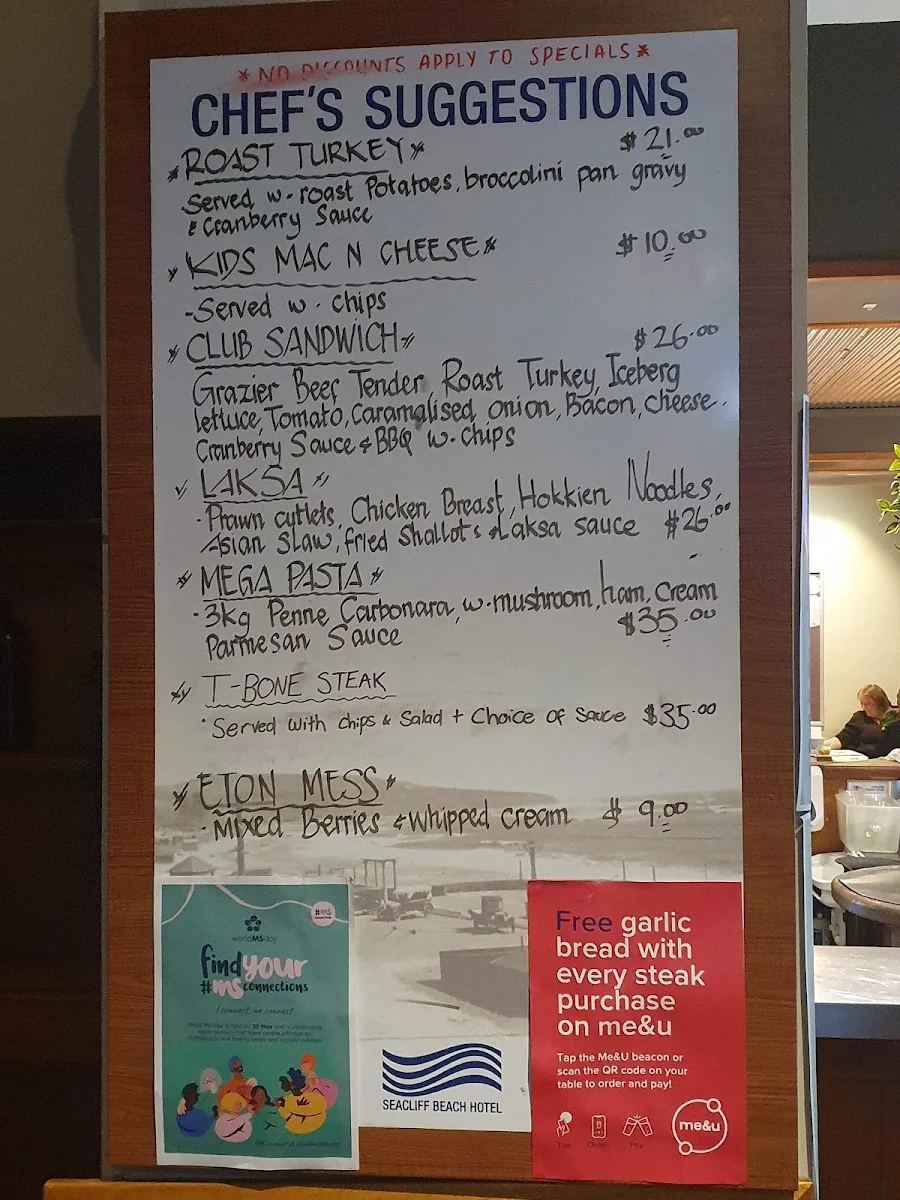 * NO DISCOUNTS APPLY TO SPECIALS *
CHEF'S SUGGESTIONS
* ROAST TURKEY * $21.00
Served w. roast Potatoes, broccolini pan gravy
& Cranberry Sauce
* KIDS MAC N CHEESE * $10.00
-Served w. chips
* CLUB SANDWICH * $26.00
Grazier Beef Tender Roast Turkey, Iceberg
lettuce, Tomato, Caramalised onion, Bacon, cheese.
Cranberry Sauce & BBQ w. chips
LAKSA
· Prawn cutlets, Chicken Breast, Hokkien Noodles,
Asian Slaw, fried Shallot's & Laksa sauce $26.00
* MEGA PASTA *
· 3kg Penne Carbonara, w. mushroom, ham, cream
Parmesan Sauce $35.00
T-BONE STEAK
· Served with chips & Salad + Choice of Sauce $35.00
* ETON MESS *
· Mixed Berries & whipped cream $ 9.00
worldMSday
find your
#ms connections
I connect, we connect
SEACLIFF BEACH HOTEL
Free garlic
bread with
every steak
purchase
on me&u
Tap the Me&U beacon or
scan the QR code on your
table to order and pay!
Tap Order Pay
me&u